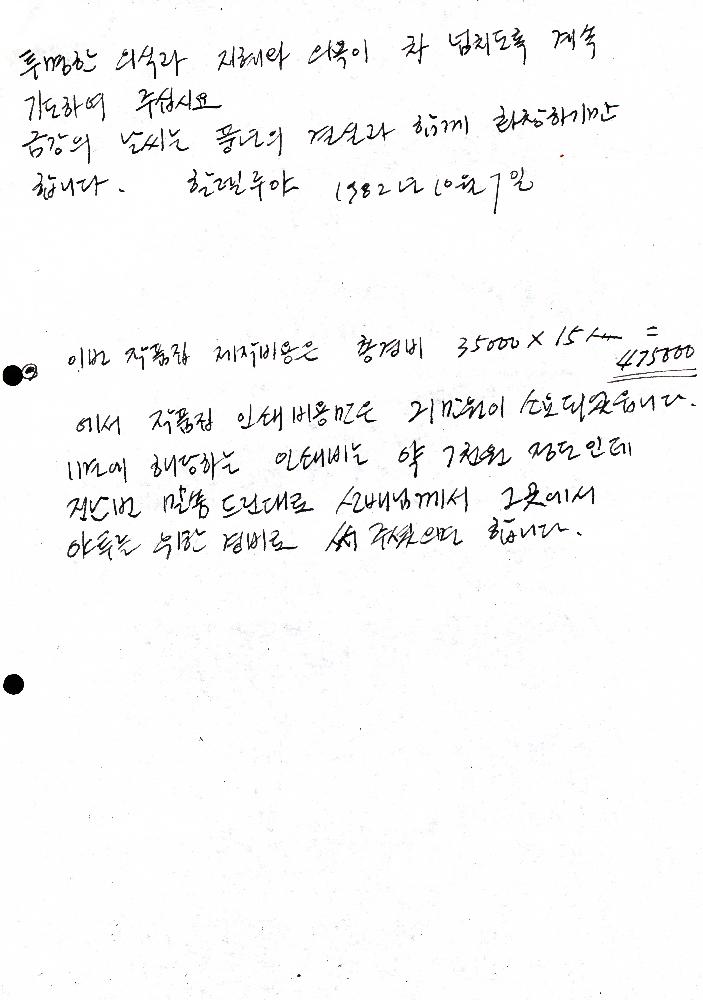 투명한 의식과 지혜와 의욕이 차 넘치도록 계속
기도하여 주십시요
금강의 날씨는 풍년의 결실과 함께 화창하기만
합니다. 할렐루야 1982년 10월 7일
이번 작품집 제작비용은 총경비 35000 × 15人 =
475000
에서 작품집 인쇄비용만은 21만원이 소요되었읍니다.
1人에 해당하는 인쇄비는 약 7천원 정도인데
전난번 말씀 드린대로 선배님께서 그곳에서
야투를 위한 경비로 써 주셨으면 합니다.